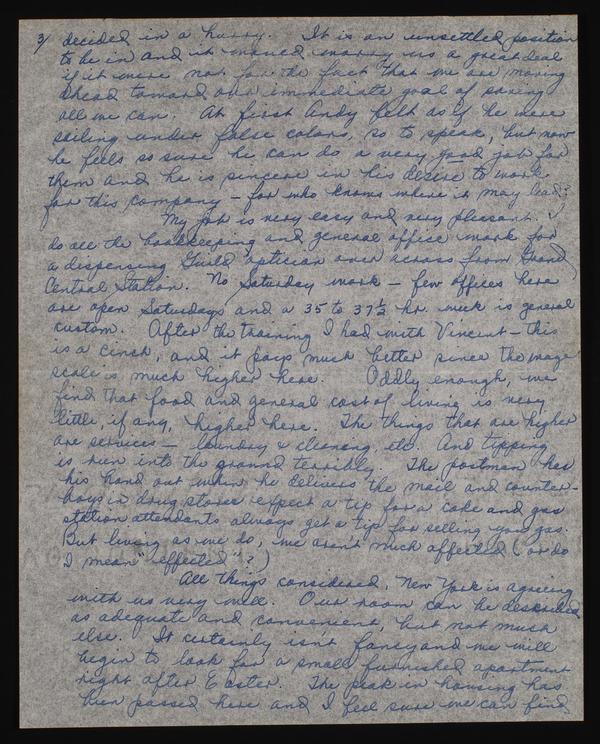 3/ decided in a hurry. It is an unsettled position
to be in and it would worry us a great deal
if it were not for the fact that we are moving
ahead toward our immediate goal of saving
all we can. At first Andy felt as if he were
sailing under false colors, so to speak, but now
he feels so sure he can do a very good job for
them and he is sincere in his desire to work
for this company – for who knows where it may lead?
My job is very easy and very pleasant. I
do all the bookkeeping and general office work for
a dispensing Guild optician over across from Grand
Central Station. No Saturday work – few offices here
are open Saturdays and a 35 to 37½ hr. week is general
custom. After the training I had with Vincent – this
is a cinch, and it pays much better since the wage
scale is much higher here. Oddly enough, we
find that food and general cost of living is very
little, if any, higher here. The things that are higher
are services – laundry & cleaning etc. And tipping
is run into the ground terribly. The postman has
his hand out when he delivers the mail and counter-
boys in drug stores expect a tip for a coke and gas
station attendants always get a tip for selling you gas.
But living as we do, we aren't much affected (or do
I mean "effected"?)
All things considered, New York is agreeing
with us very well. Our room can be described
as adequate and convenient, but not much
else. It certainly isn't fancy and we will
begin to look for a small furnished apartment
right after Easter. The peak in housing has
been passed here and I feel sure we can find